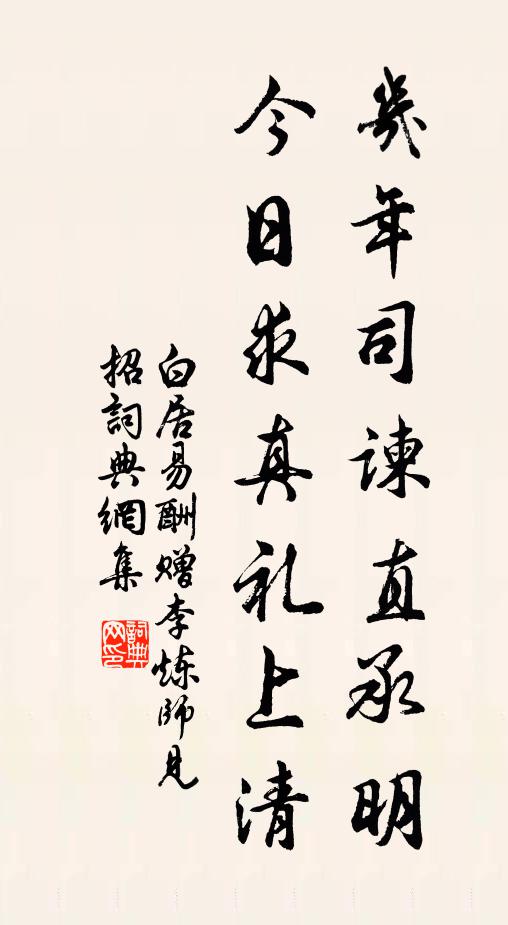 幾年司諫直承明
今日求真礼上清
白居易酬赠李炼師見
招詞典網集
詞典
网印